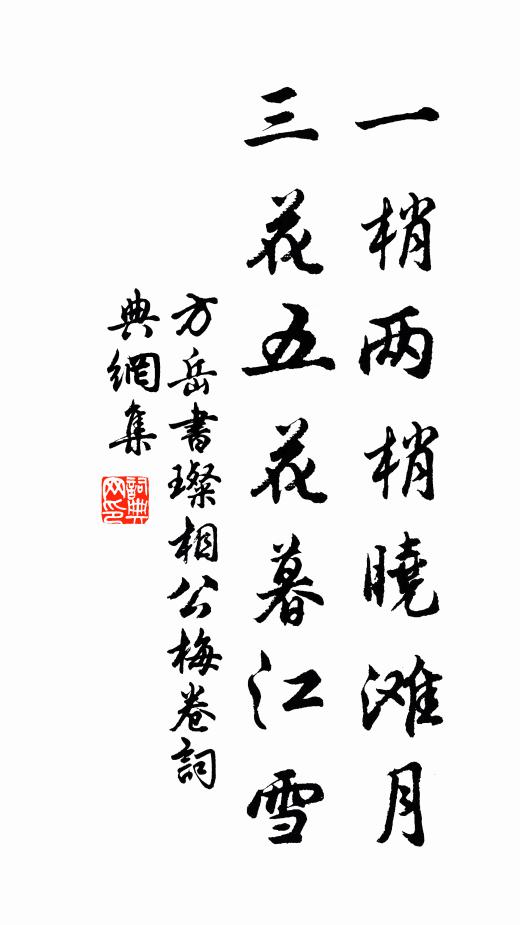 一梢两梢曉滩月
三花五花暮江雪
方岳書璨相公梅卷詞
典網集
詞典网印